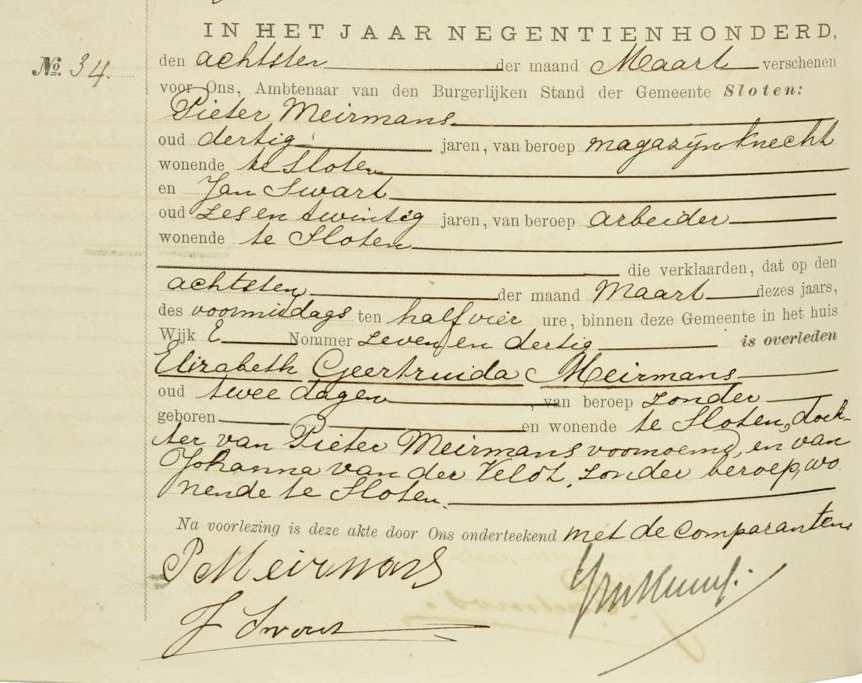 IN HET JAAR NEGENTIENHONDERD,
No. 34.
den achtsten der maand Maart verschenen
voor Ons, Ambtenaar van den Burgerlijken Stand der Gemeente Sloten:
Pieter Meirmans
oud dertig jaren, van beroep magazijnknecht
wonende te Sloten
en Jan Swart
oud zes en twintig jaren, van beroep arbeider
wonende te Sloten
die verklaarden, dat op den
achtsten der maand Maart dezes jaars,
des voormiddags ten half vier ure, binnen deze Gemeente in het huis
Wijk E Nommer zeven en dertig is overleden
Elizabeth Geertruida Meirmans
oud twee dagen, van beroep zonder
geboren en wonende te Sloten, doch-
ter van Pieter Meirmans voornoemd, en van
Johanna van der Veldt, zonder beroep, wo
nende te Sloten.
Na voorlezing is deze akte door Ons onderteekend met de comparanten
P Meirmans
J Swart